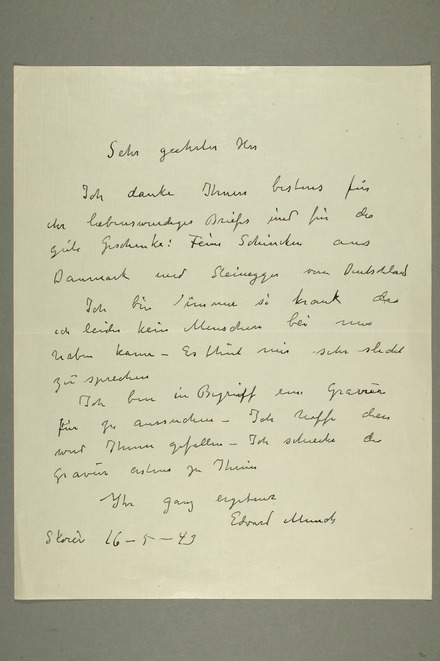 Sehr geehrter Herr
Ich danke Ihnen bestens für
ihr liebenswurdiges Briefs und für die
gute Geschenke: Feine Schincken aus
Danmark und Steinegger von Deutschland
Ich bin immer so krank das
ich leider kein Menschen bei mir
haben kann – Es thut mir sehr slecht
zu sprechen
Ich bin in Begriff eine Gravür
für zu aussuchen – Ich hoffe das
wird Ihnen gefallen – Ich schicke die
Gravür zu Ihnen
Ihr ganz ergebener
Edvard Munch
16 – 5 – 43